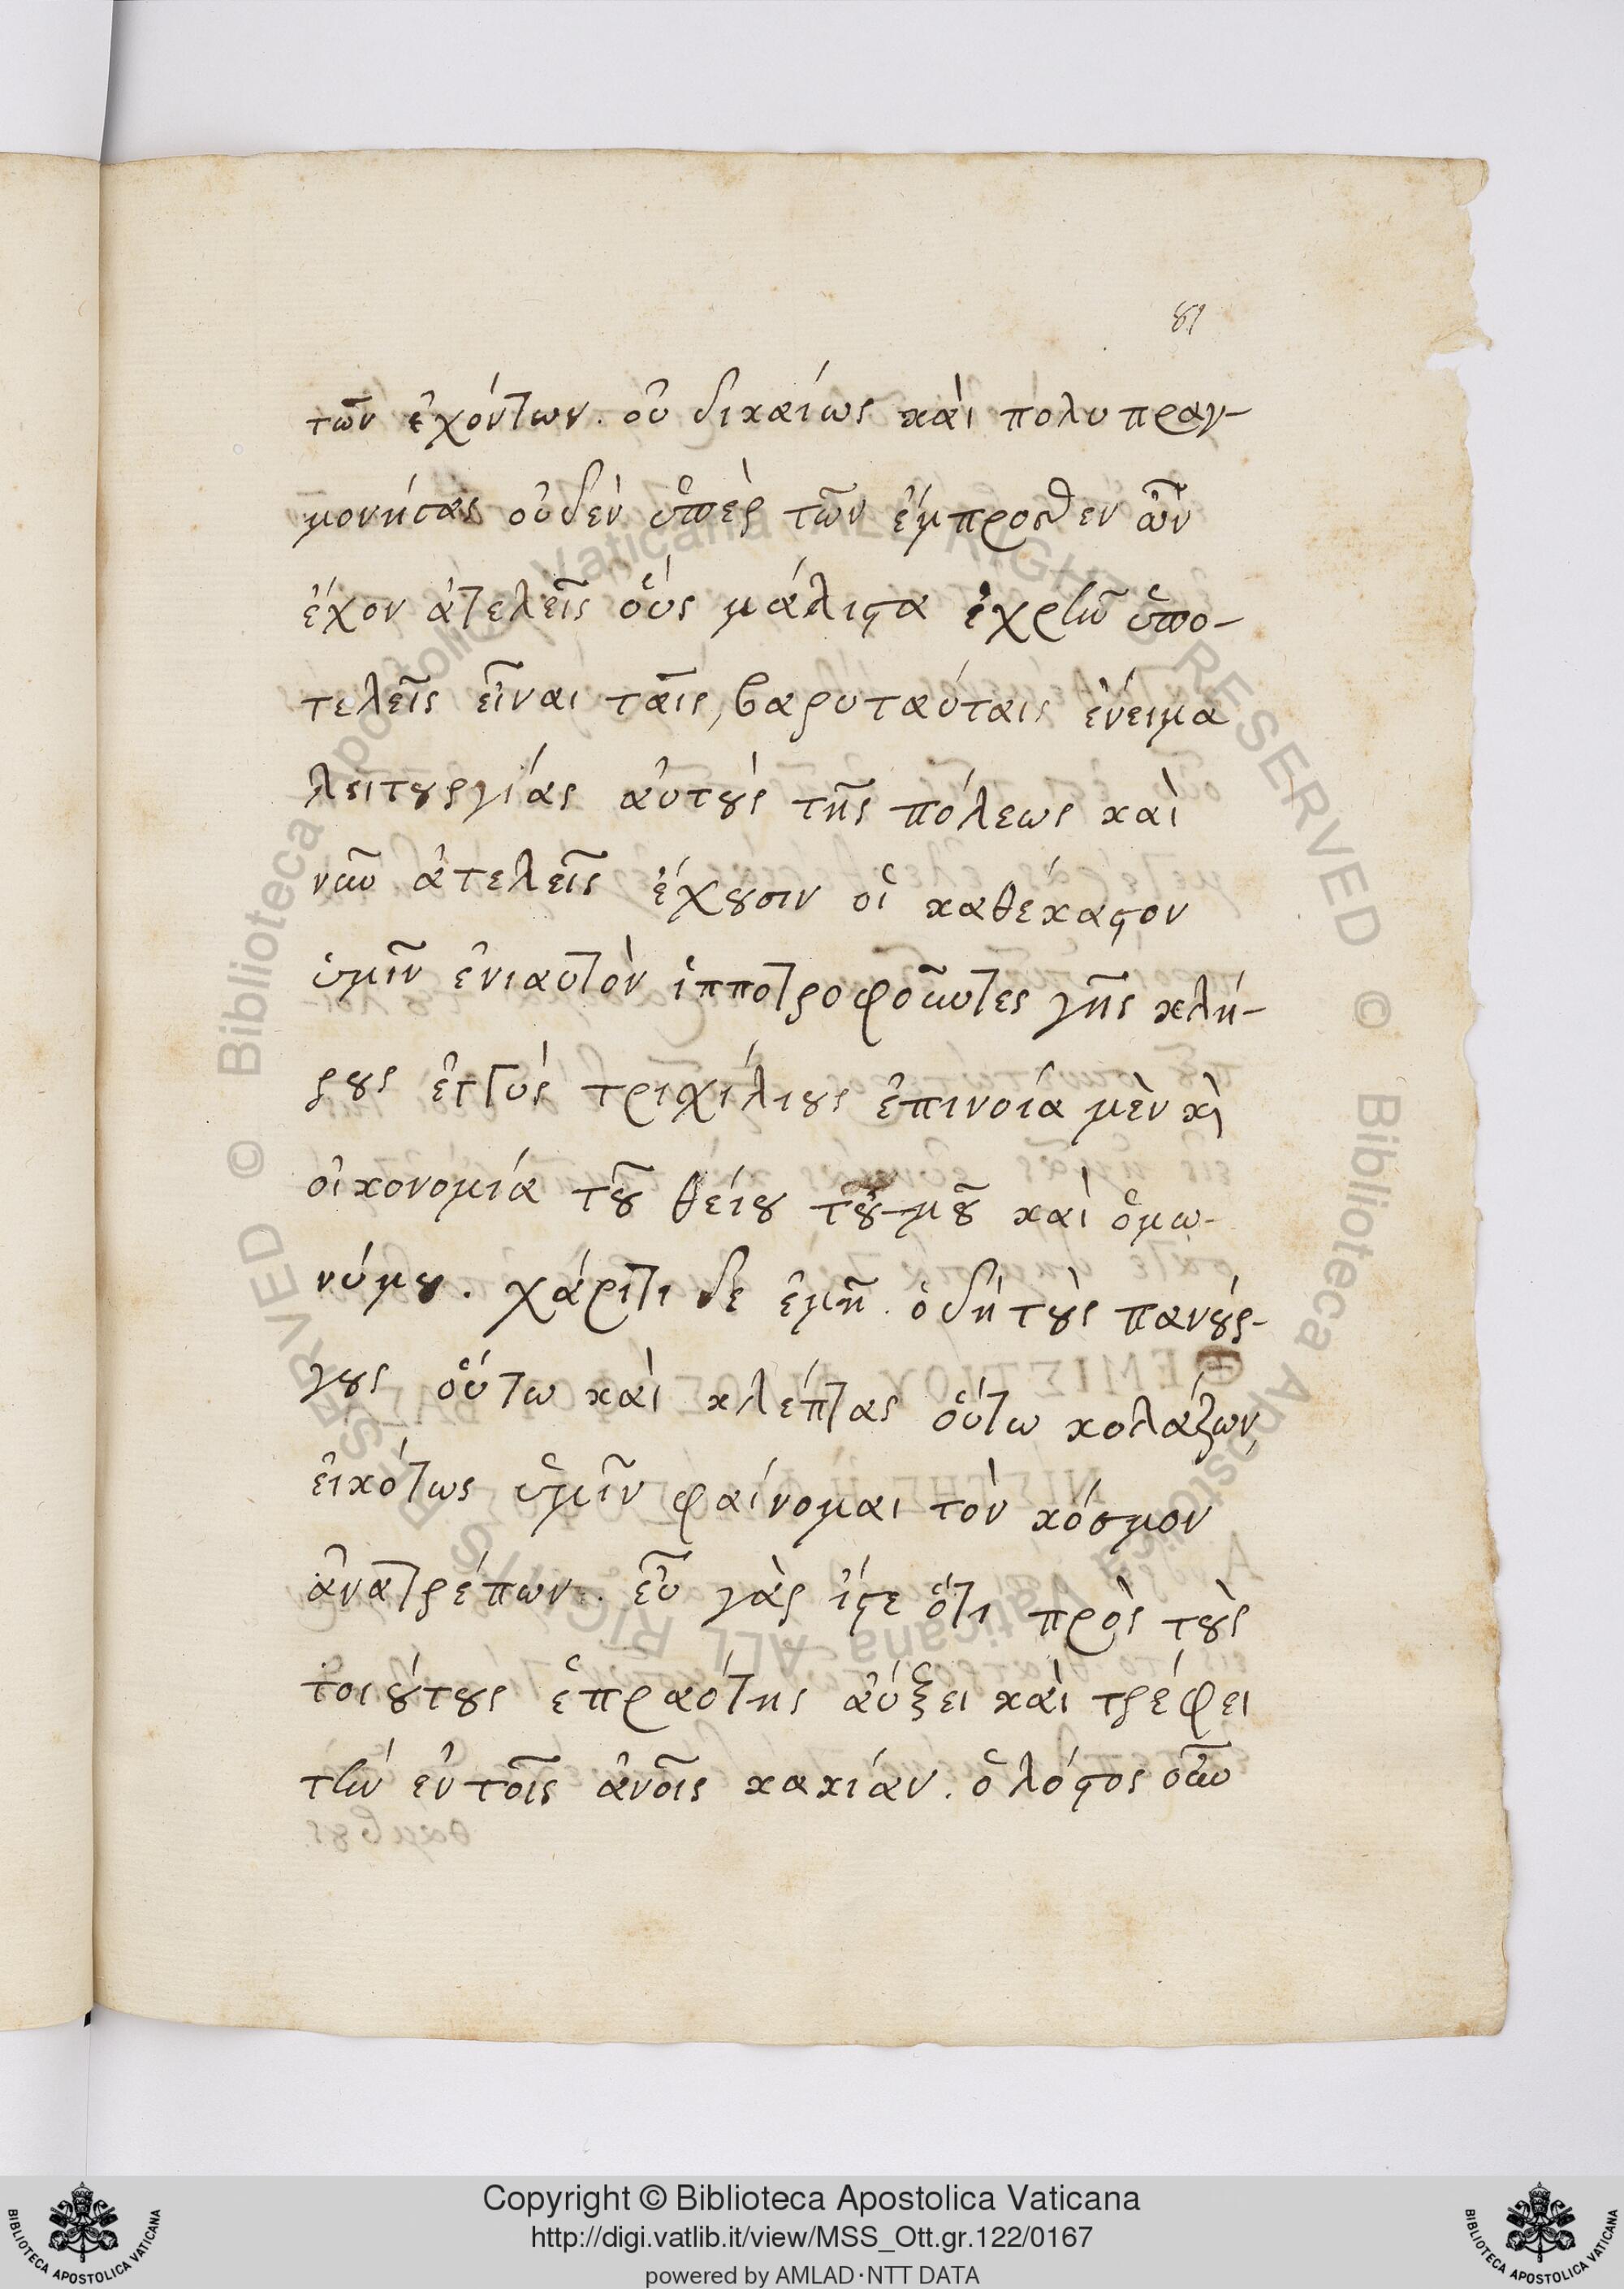 81
τῶν ἐχόντων. οὐ δικαίως καὶ πολυπραγ-
μονήσας οὐδὲν ὑπὲρ τῶν ἔμπροσθεν ὧν
ἔχον ἀτελεῖς οὓς μάλιστα ἐχρῆν ὑπο-
τελεῖς εἶναι ταῖς βαρυτάταις ἔνειμα
λειτουργίας αὐτοὺς τῆς πόλεως καὶ
νῦν ἀτελεῖς ἔχουσιν οἱ καθέκαστον
ὑμῖν ἐνιαυτὸν ἱπποτροφοῦντες γῆς κλή-
ρους ἐγγύς τριχιλίους ἐπινοίᾳ μὲν κὶ
οἰκονομίᾳ τοῦ θείου τοὐμοῦ καὶ ὁμω-
νύμου. χάριτι δε ἐμῆ. ὁ δὴ τοὺς πανούρ-
γους οὕτω καὶ κλέπτας οὕτω κολάζων,
εἰκότως ὑμῖν φαίνομαι τὸν κόσμον
ἀνατρέπων. εὖ γὰρ ἴστε ὅτι πρὸς τοὺς
τοιούτους ἡ πραότης αὔξει καὶ τρέφει
τὴν ἐν τοῖς ἀνοῖς κακίαν. ὁ λόγος οὖν
Copyright © Biblioteca Apostolica Vaticana
http://digi.vatlib.it/view/MSS_Ott.gr.122/0167
powered by AMLAD·NTT DATA
BIBLIOTECA APOSTOLICA VATICANA
BIBLIOTECA APOSTOLICA VATICANA
© Biblioteca Apostolica Vaticana ALL RIGHTS RESERVED © Biblioteca Apostolica Vaticana ALL RIGHTS RESERVED